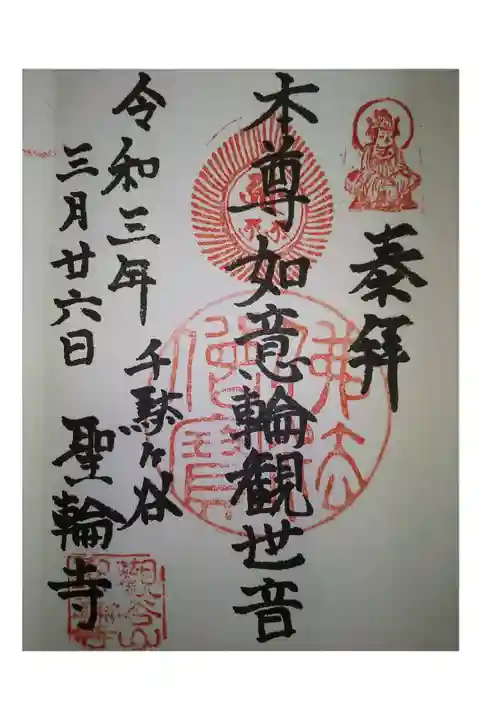 奉拝
本尊如意輪観世音
令和三年
三月廿六日
千駄ヶ谷
聖輪寺